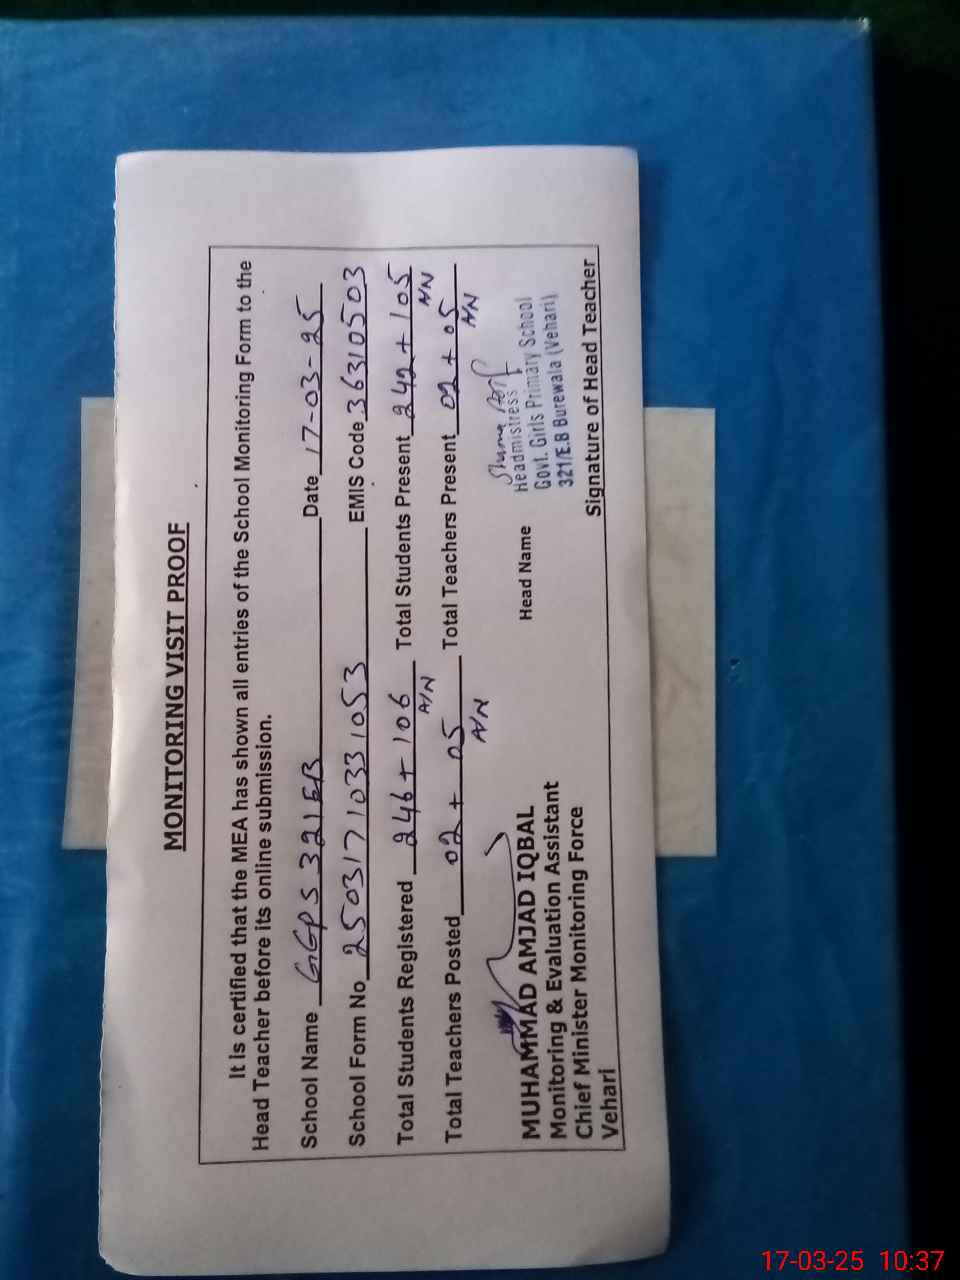 MONITORING VISIT PROOF
It Is certified that the MEA has shown all entries of the School Monitoring Form to the
Head Teacher before its online submission.
School Name GGPS 321EB Date 17-03-25
School Form No 25031710331053 EMIS Code 36310503
Total Students Registered 246 + 106 Total Students Present 242 + 105
A/N A/N
Total Teachers Posted 02 + 05 Total Teachers Present 02 + 05
A/N A/N
Head Name
Headmistress
Govt. Girls Primary School
321/E.B Burewala (Vehari)
MUHAMMAD AMJAD IQBAL
Monitoring & Evaluation Assistant
Chief Minister Monitoring Force
Vehari
Signature of Head Teacher
17-03-25 10:37